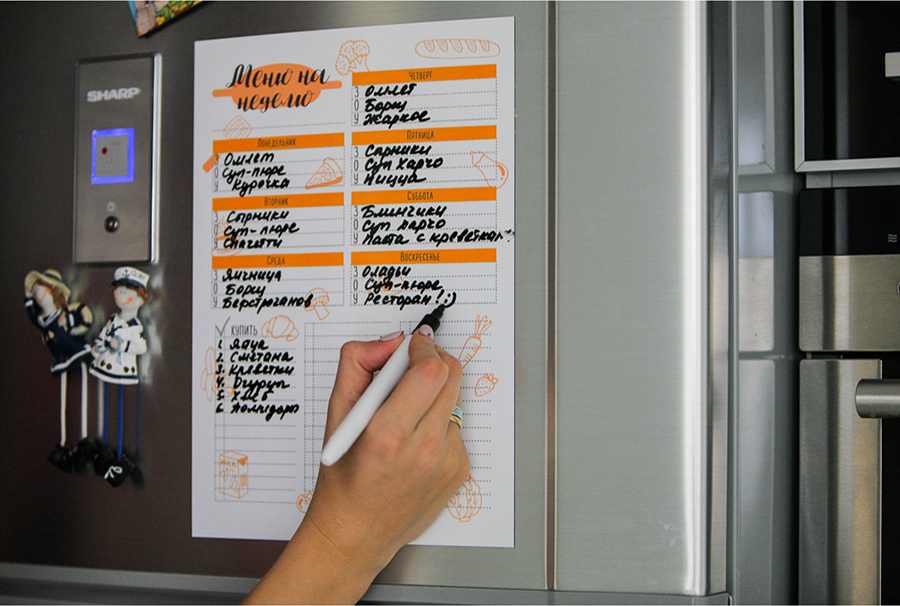 SHARP
Меню на
неделю
Понедельник
З Омлет
О Суп-пюре
У Курочка
Вторник
З Сырники
О Суп-пюре
У Спагетти
Среда
З Яичница
О Борщ
У Бефстроганов
Четверг
З Омлет
О Борщ
У Жаркое
Пятница
З Сырники
О Суп харчо
У Пицца
Суббота
З Блинчики
О Суп харчо
У Паста с креветками
Воскресенье
З Оладьи
О Суп-пюре
У Ресторан! :)
Купить
1. Яйца
2. Сметана
3. Креветки
4. Огурцы
5. Хлеб
6. Помидоры